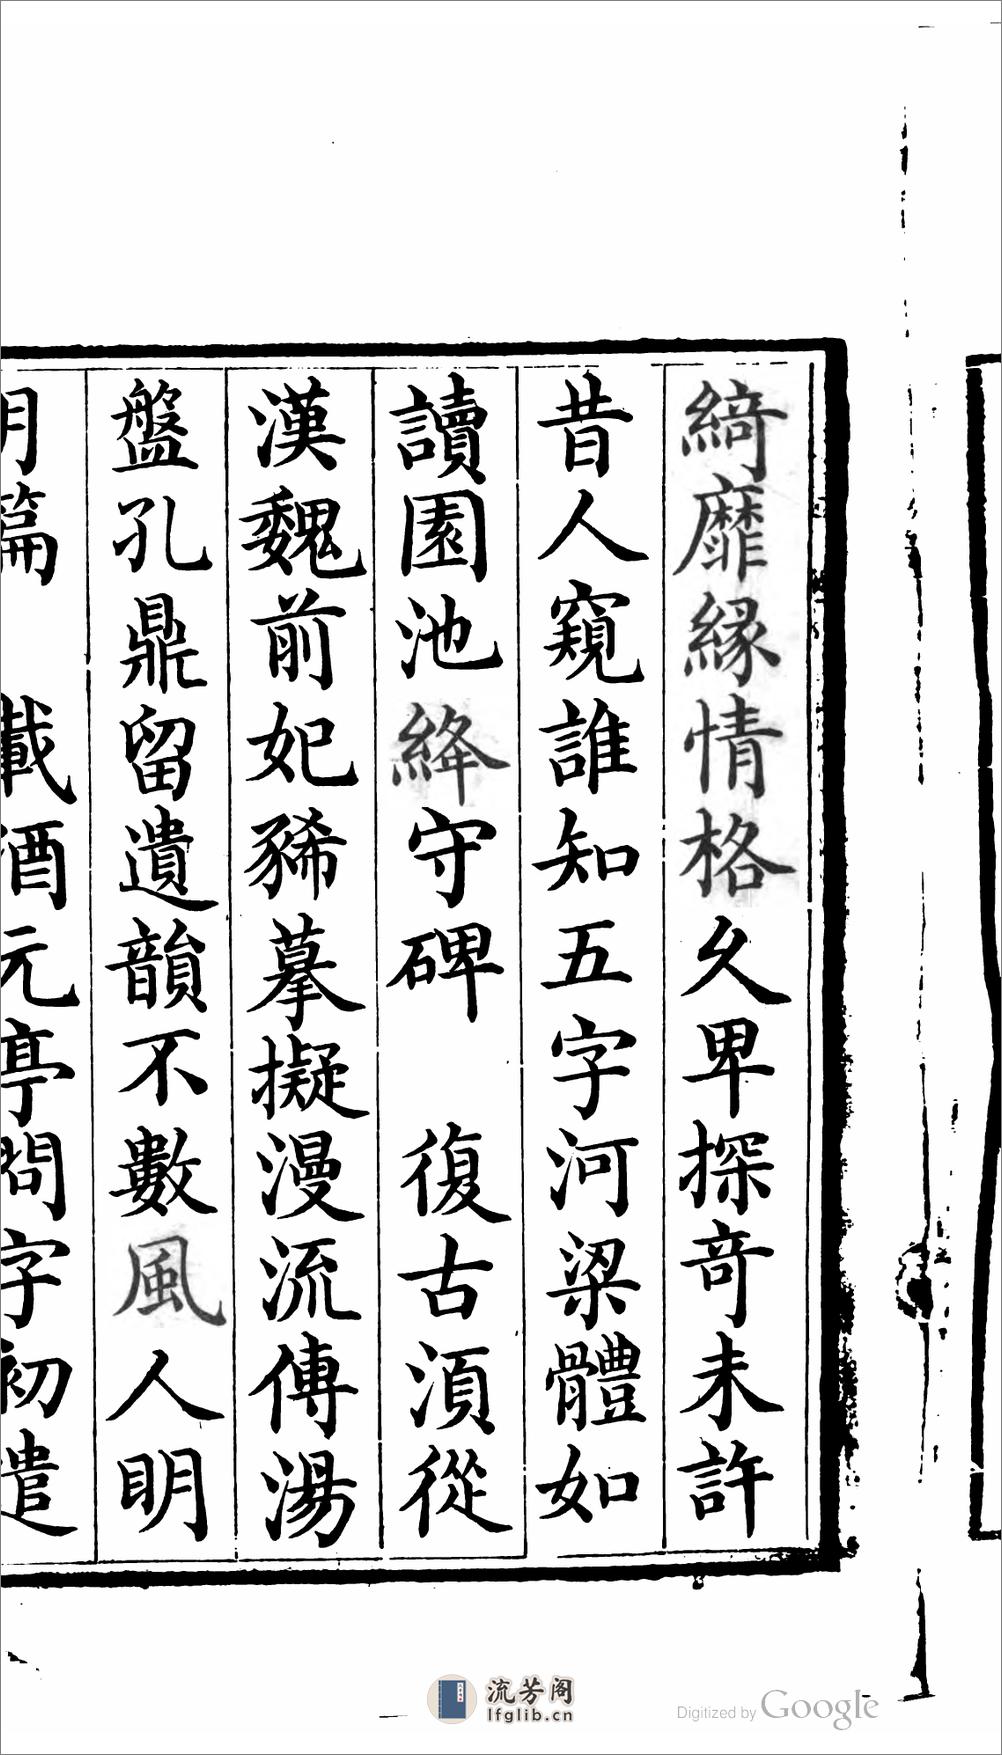 綺靡緣情格久卑探竒未許
昔人窺誰知五字河梁體如
讀園池絳守碑　復古湏從
漢魏前妃豨摹擬漫流傳湯
盤孔鼎留遺韻不數風人明
月篇　載酒元亭問字初遣
流芳阁
lfglib.cn
Digitized by Google